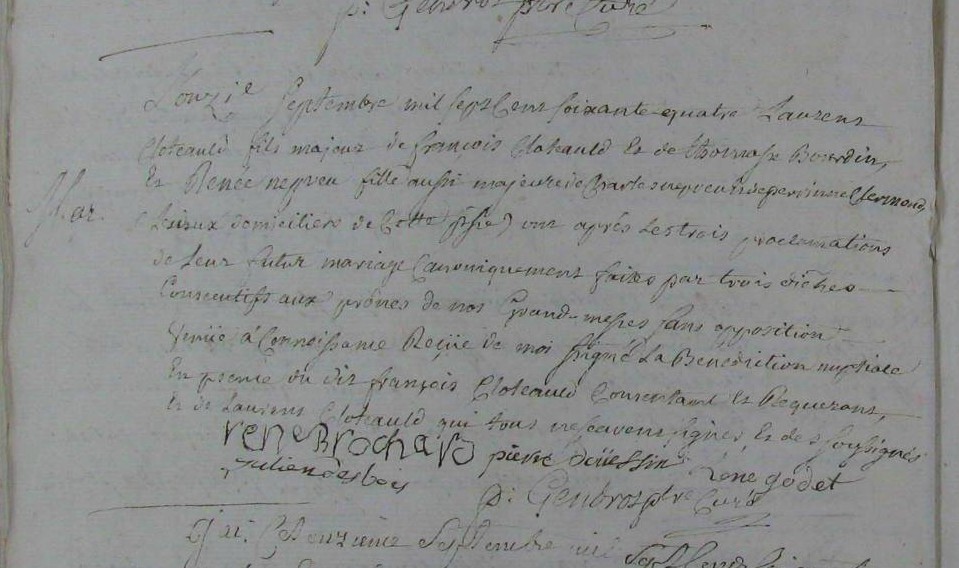 p: Gendros ptre Curé
Lonzie Septembre mil sept Cent soixante-quatre Laurens
Cloteauld fils majeur de françois Cloteauld Et de thomasse Bourdin,
Et Renée nepveu fille aussi majeure de nepveu perinne Clermond,
Mar.
domiciliers de Cette psse) ont après Les trois proclamations
de Leur futur mariage Canoniquement faites par trois dîches
Consecutifs aux prônes de nos Grand-messes sans opposition
Venüe à Connoissance Reçüe de moi ssigné La Benediction nuptiale
En presence du dit françois Cloteauld Consentant Et Requerant,
Et de Laurens Cloteauld qui tous ne scavent signer, Et des soussignés
rene Brochard pierre rene godet
julien desbois
p: Gendros ptre Curé
Septembre mil sept Cent